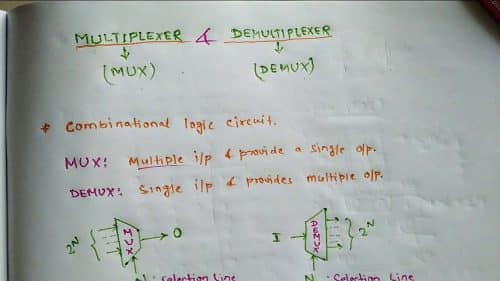 MULTIPLEXER & DEMULTIPLEXER
(MUX) (DEMUX)
* Combinational logic circuit.
MUX: Multiple i/p & provide a single o/p.
DEMUX: Single i/p & provides multiple o/p.
2^N MUX O I DEMUX 2^N
N: Selection Line N: Selection Line